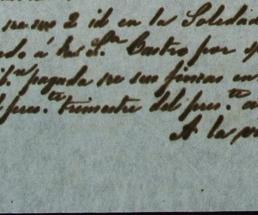 se me 2 id en la Soledad
do á D. S.n Castro por
pagada de sus fincas en
pres.te trimestre del pres.te a
A la v